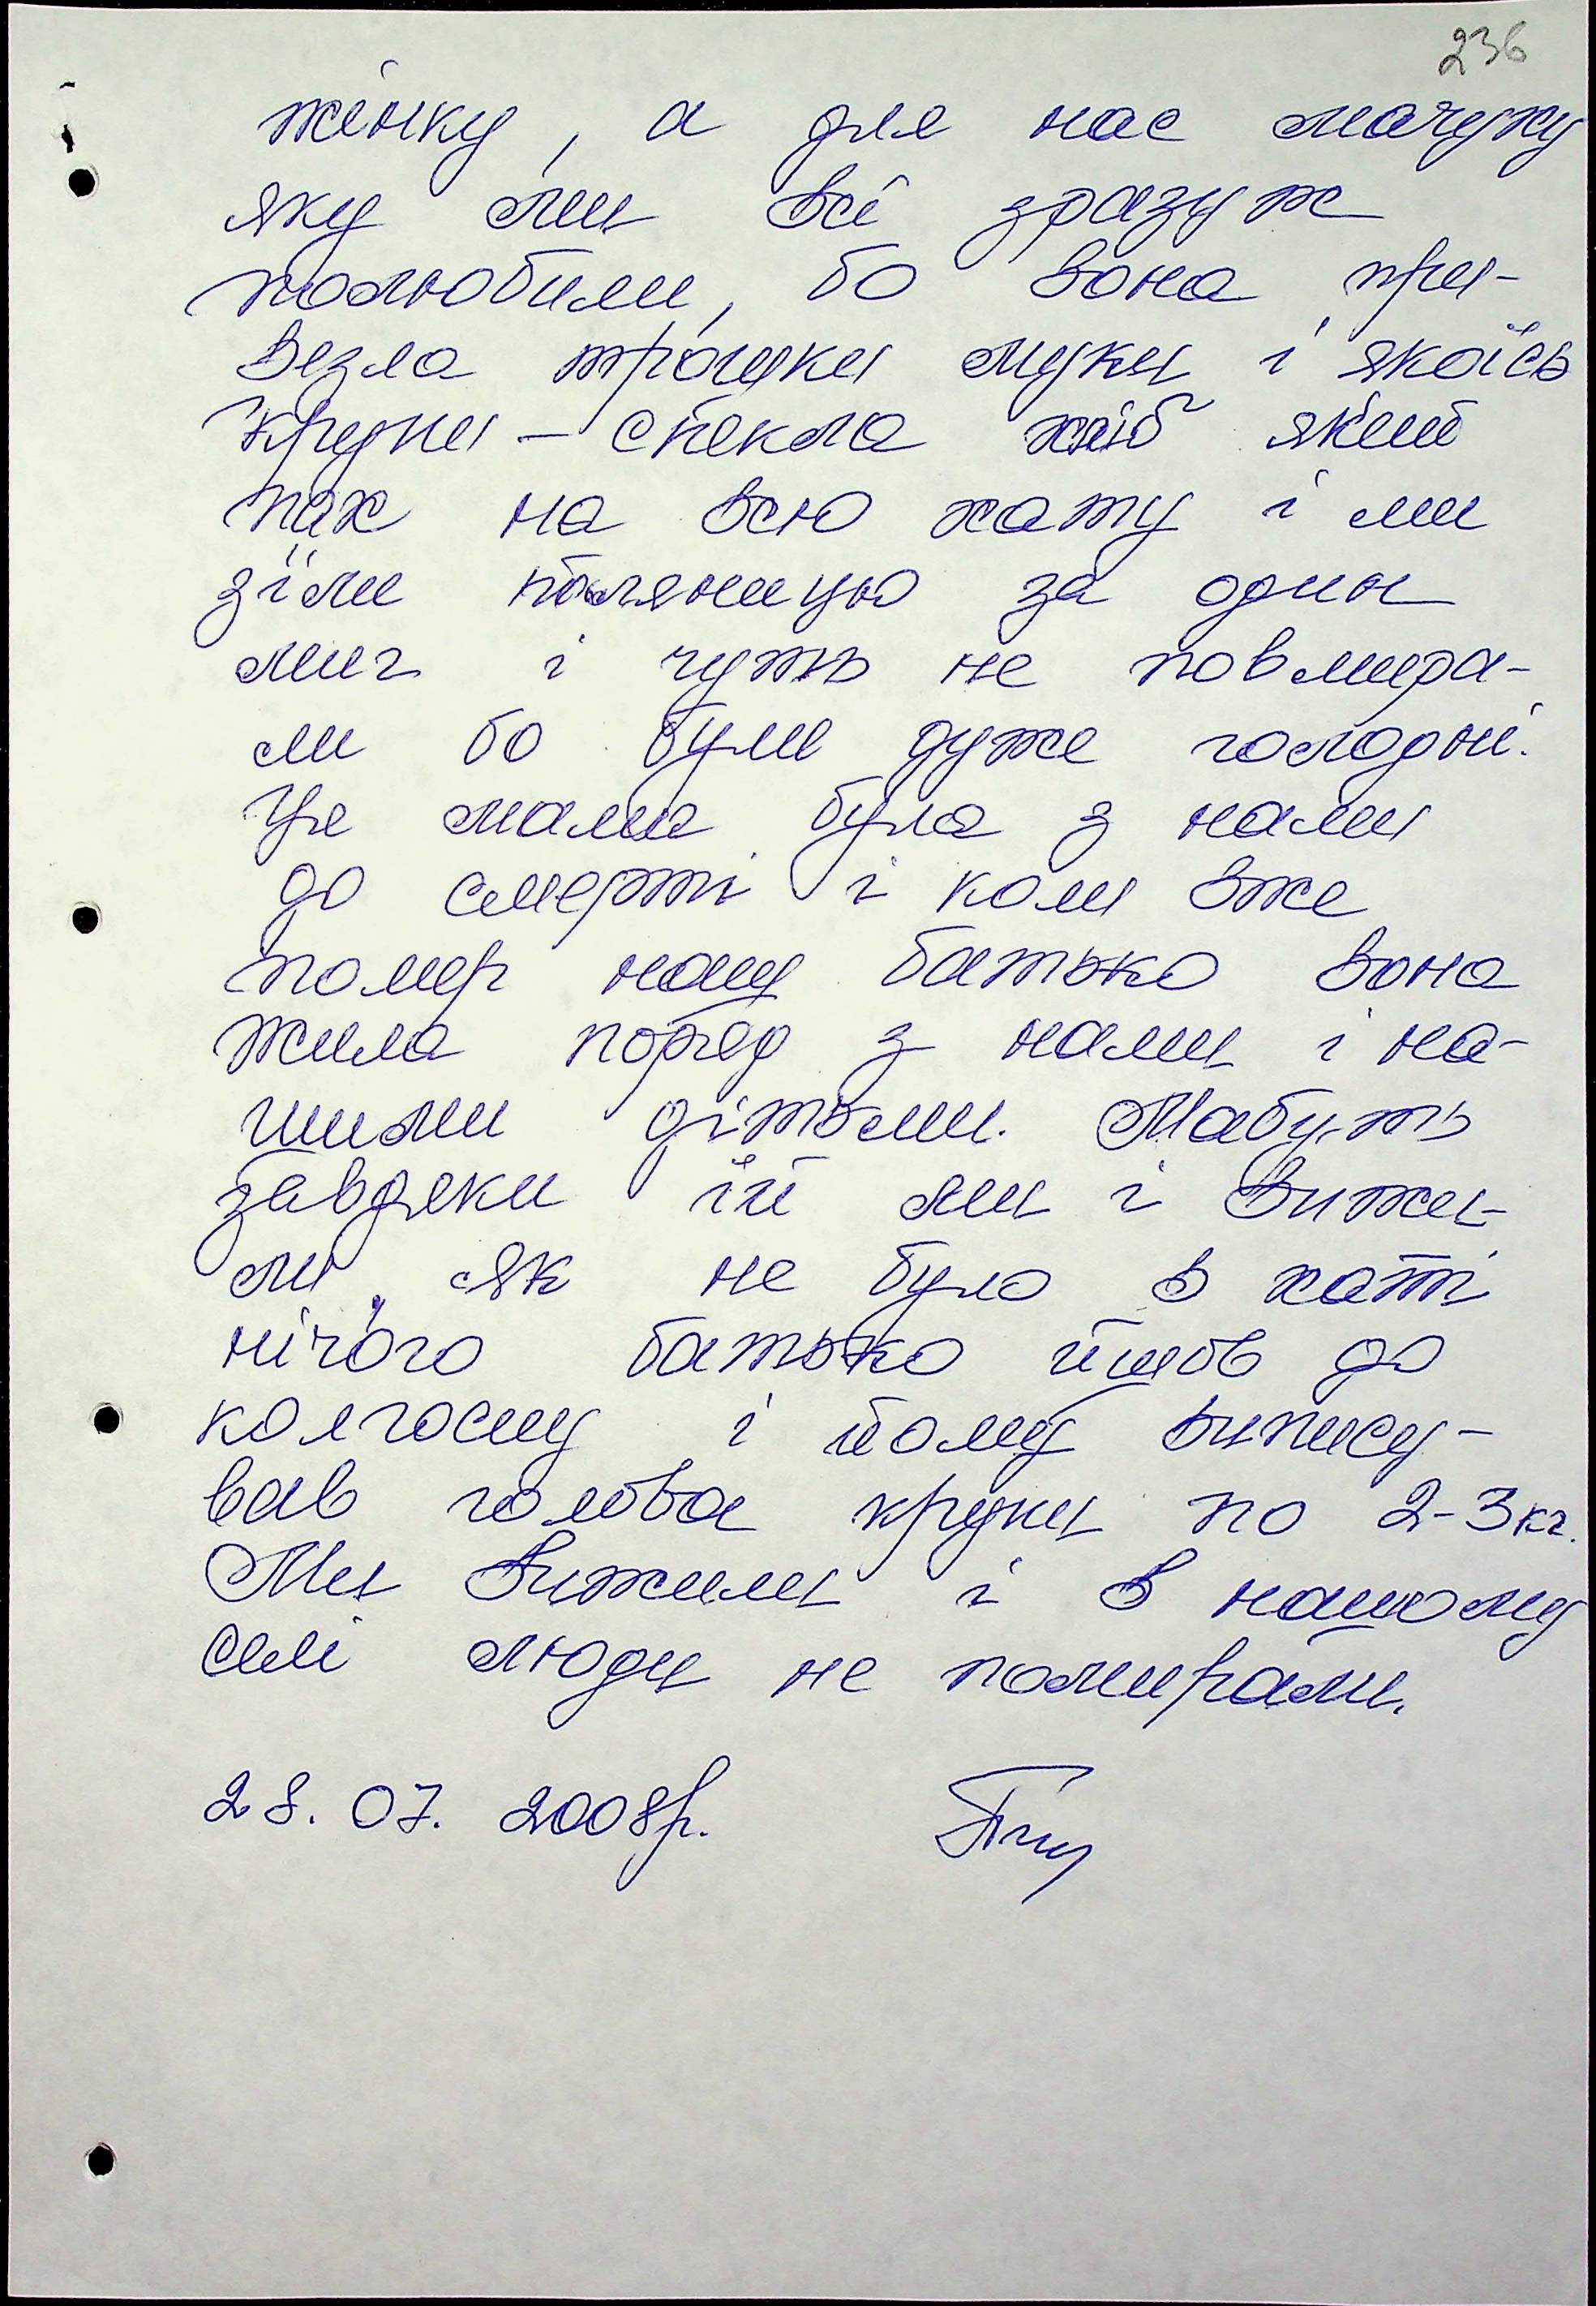 236
жінку, а для нас мачуху
яку ми всі зразу ж
полюбили, бо вона при-
везла трошки муки і якоїсь
крупи - спекла хліб який
пах на всю хату і ми
зїли поляницю за один
миг і чуть не повмира-
ли бо були дуже голодні.
Це мама була з нами
до смерті і коли вже
помер наш батько вона
жила поряд з нами і на-
шими дітьми. Мабуть
завдяки їй ми і вижи-
ли, як не було в хаті
нічого батько йшов до
колгоспу і йому випису-
вав голова крупи по 2-3кг.
Ми вижили і в нашому
селі люди не помирали.
28. 07. 2008р.